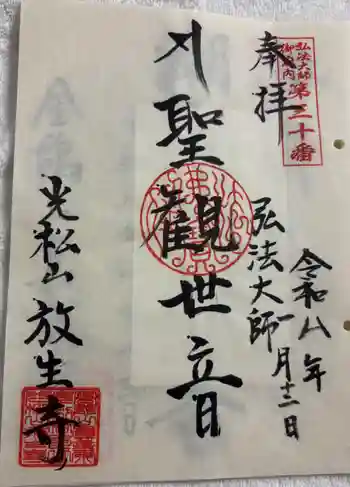 弘法大師
御府内
第三十番
奉拝
弘法大師
令和八年
一月十二日
聖観世音
光松山
放生寺